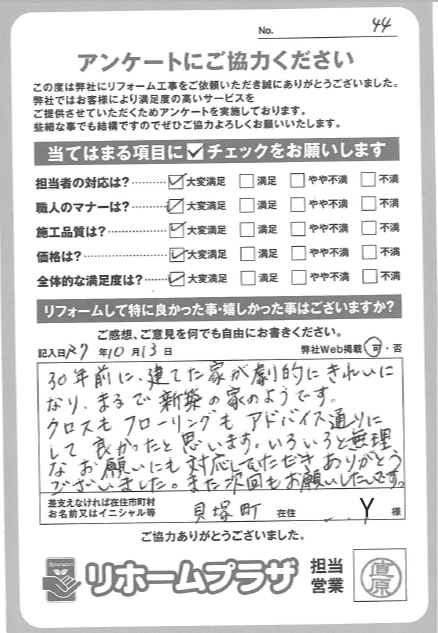 No. 44
アンケートにご協力ください
この度は弊社にリフォーム工事をご依頼いただき誠にありがとうございました。
弊社ではお客様により満足度の高いサービスを
ご提供させていただくためアンケートを実施しております。
些細な事でも結構ですのでぜひご協力よろしくお願いいたします。
当てはまる項目に☑チェックをお願いします
担当者の対応は? ☑大変満足 □満足 □やや不満 □不満
職人のマナーは? ☑大変満足 □満足 □やや不満 □不満
施工品質は? ☑大変満足 □満足 □やや不満 □不満
価格は? ☑大変満足 □満足 □やや不満 □不満
全体的な満足度は? ☑大変満足 □満足 □やや不満 □不満
リフォームして特に良かった事・嬉しかった事はございますか?
ご感想、ご意見を何でも自由にお書きください。
記入日R7年10月13日 弊社Web掲載 可・否
30年前に、建てた家が劇的にきれいに
なり、まるで新築の家のようです。
クロスもフローリングもアドバイス通りに
して良かったと思います。いろいろと無理
なお願いにも対応していただきありがとう
ございました。また次回もお願いしたいです。
差支えなければ在住市町村
お名前又はイニシャル等
貝塚町 在住 Y 様
ご協力ありがとうございました。
リホームプラザ
担当
営業
直原